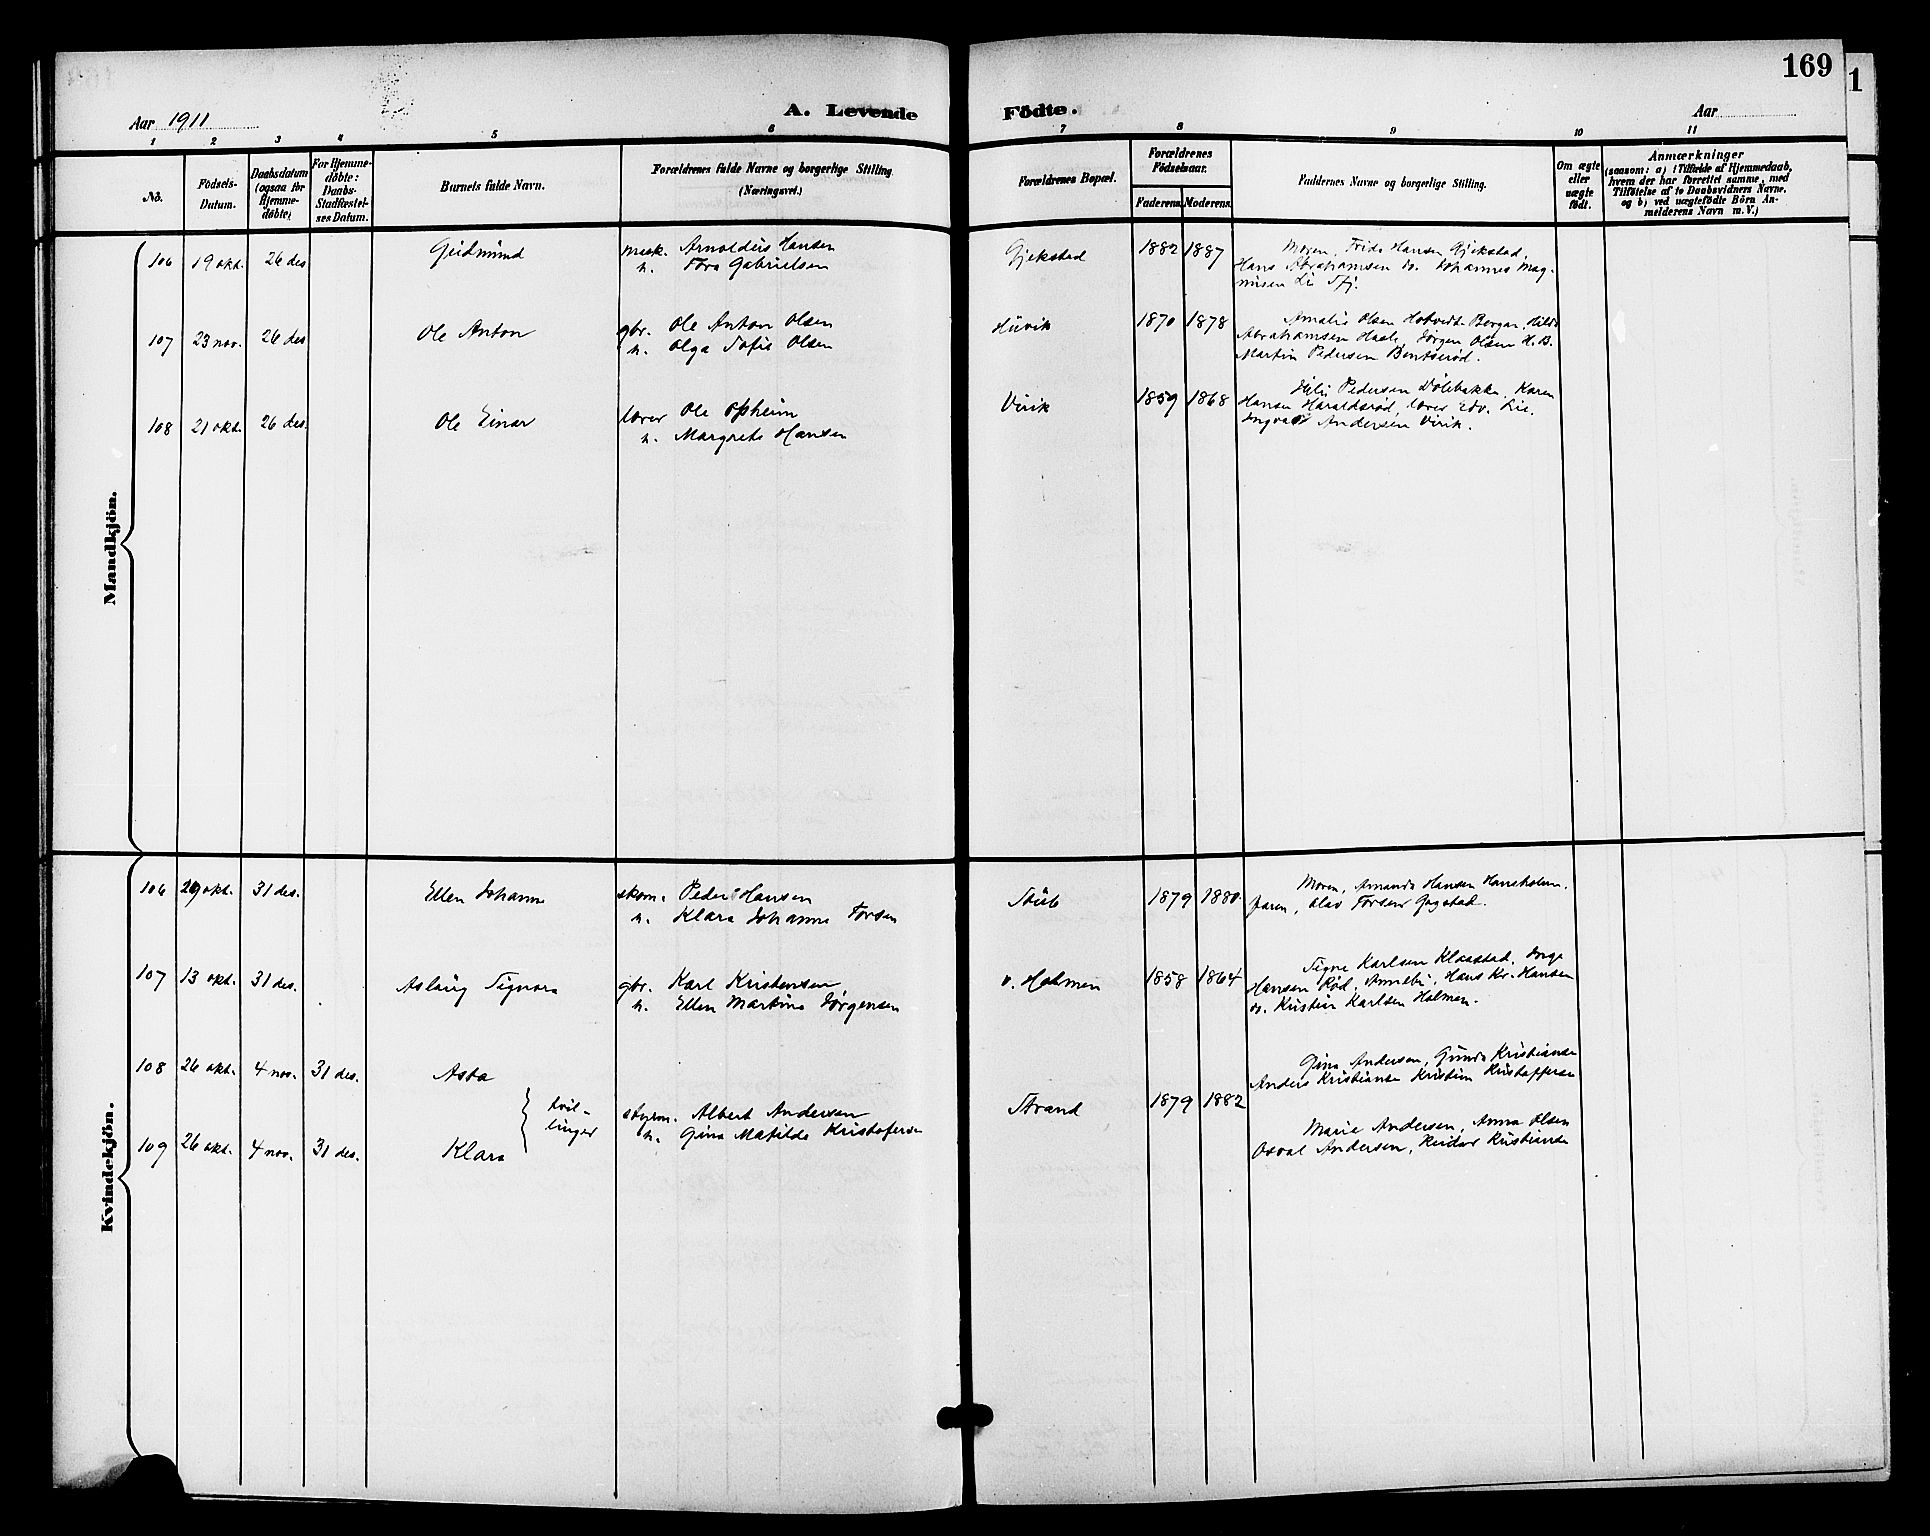 169
1
Aar 1911
A. Levende
Födte.
Aar
1 2 3 4 5 6 7 8 9 10 11
No.
Födsels-
Datum.
Daabsdatum
(ogsaa for
Hjemme-
døbte)
For Hjemme-
døbte:
Daabs-
Stadfæstel-
ses Datum.
Barnets fulde Navn.
Forældrenes fulde Navne og borgerlige Stilling
(Næringsvei.)
Forældrenes Bopæl.
Forældrenes
Födselsaar.
Faderens. Moderens.
Faddernes Navne og borgerlige Stilling.
Om ægte
eller
uægte
født.
Anmærkninger
(saasom: a) i Tilfælde af Hjemmedaab,
hvem der har forrettet samme, med
Tilføielse af to Daabsvidners Navne,
og b) ved uægtefödte Börn An-
melderens Navn m. V.)
Mandkjön.
106 19 okt. 26 des Gudmund
mask. Arnoldus Hansen
h. Tora Gabrielsen
Gjekstad 1882 1887
Moren, Frida Hansen Gjekstad,
Hans Abrahamsen os. Johannes Mag-
nusen Li Tfj.
107 23 nov. 26 des Ole Anton
gbr. Ole Anton Olsen
h. Olga Sofie Olsen
Huvik 1870 1878
Amalie Olsen Hotvedt Bergan, Hilda
Abrahamsen Hasle, Jørgen Olsen H.B.
Martin Pedersen Bentserød.
108 21 okt. 26 des. Ole Einar
lærer Ole Opheim
h. Margrete Hansen
Virik 1859 1868
Pedersen Dølebakke, Karen
Hansen Haraldsrød, lærer Edv. Lie.
Ingvald Andersen Virik.
Kvindekjön.
106 29 okt. 31 des. Ellen Johanne
skom. Peder Hansen
h. Klara Johanne Torsen
Stub 1879 1880
Moren, Amanda Hansen Haneholmen.
faren, Olav Torsen Gogstad.
107 13 okt. 31 des. Aslaug Signora
gbr. Karl Kristensen
h. Ellen Martine Jørgensen
v. Holmen 1858 1864
Signe Karlsen Klaastad, Inga
Hansen Rød, Annebu, Hans Kr. Hansen
os. Kristian Karlsen Holmen.
108 26 okt. 4 nov. 31 des. Asta
Gina Andersen, Gunda Kristianse
Anders Kristianse Kristian Kristoffersen
tvil-
linger
styrm. Albert Andersen
h. Gina Matilde Kristofersen
Strand 1879 1882
109 26 okt. 4 nov. 31 des. Klara
Marie Andersen, Anna Olsen
Osval Andersen, Reidar Kristianse